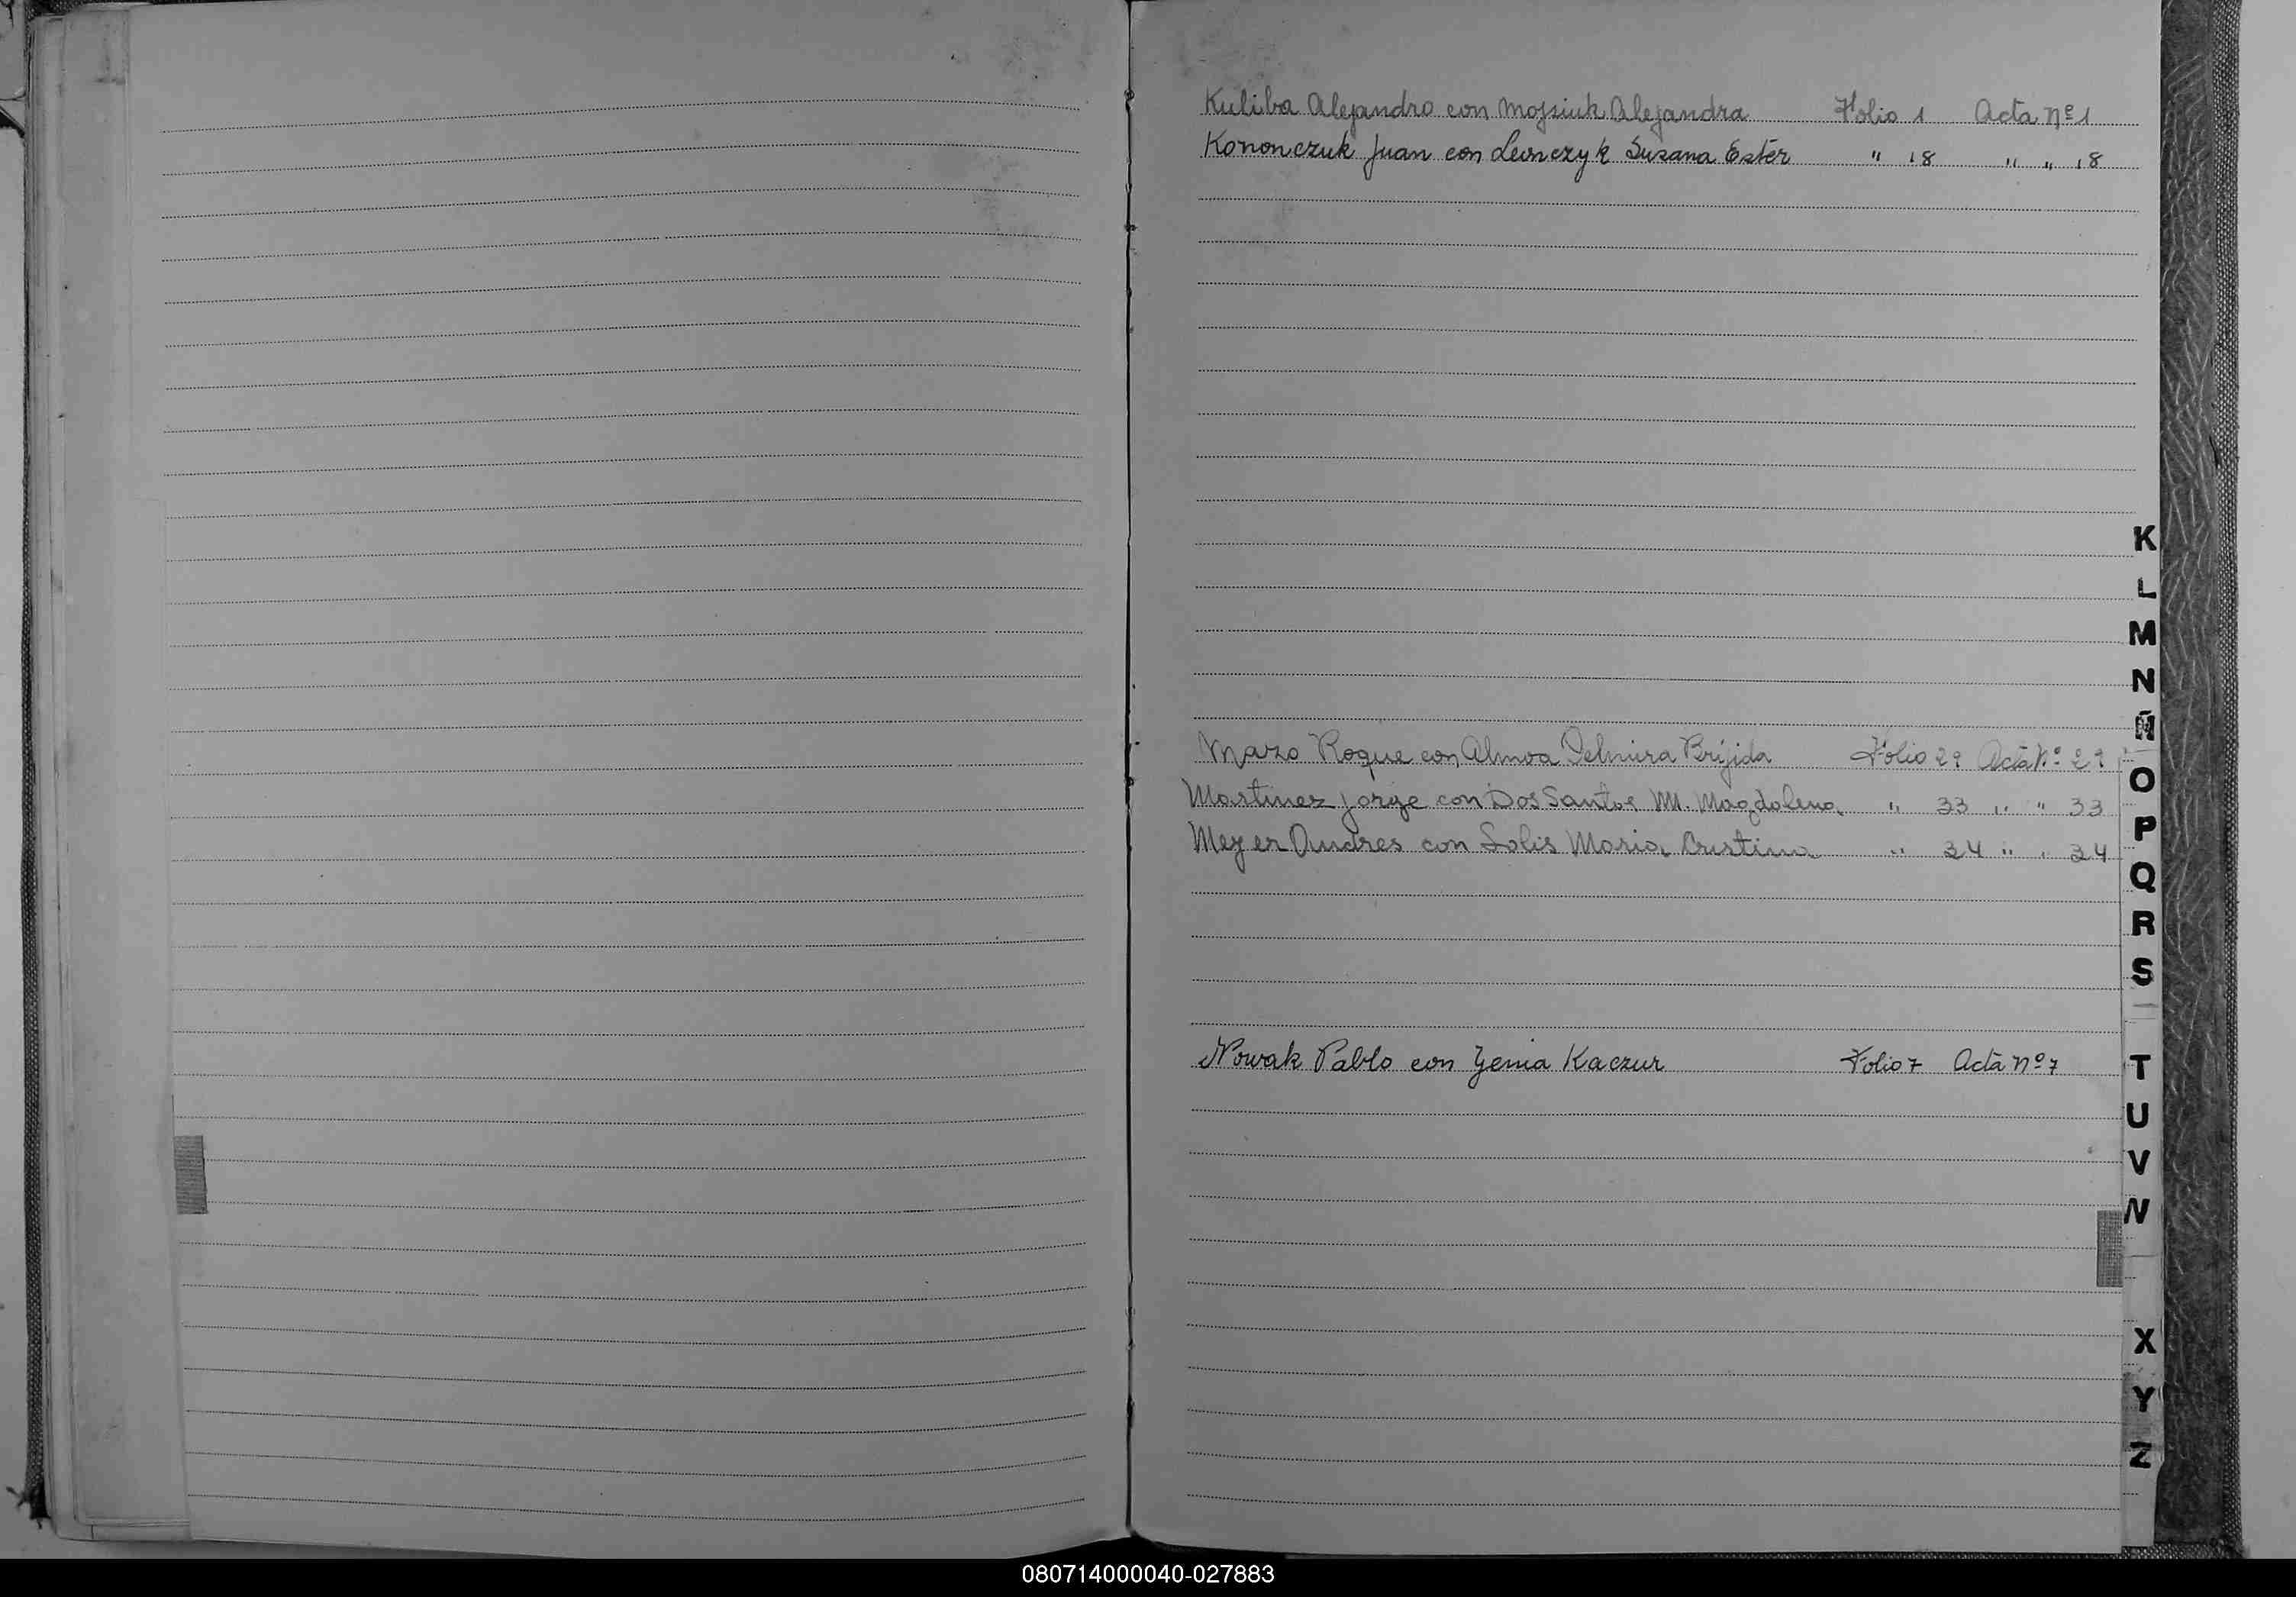 Kuliba Alejandro con Mojsiuk Alejandra Folio 1 Acta Nº 1
Kononczuk Juan con Lewczyk Susana Ester " 18 " " 18
K
L
M
N
Ñ
Mazo Roque con Delmira Brijida Folio 29 Acta Nº 29
O
Martinez Jorge con Dos Santos M. Magdalena " 33 " " 33
P
Meyer Andres con Solis Maria Cristina " 34 " " 34
Q
R
S
Nowak Pablo con Zenia Kaczur Folio 7 Acta Nº 7
T
U
V
W
X
Y
Z
080714000040-027883